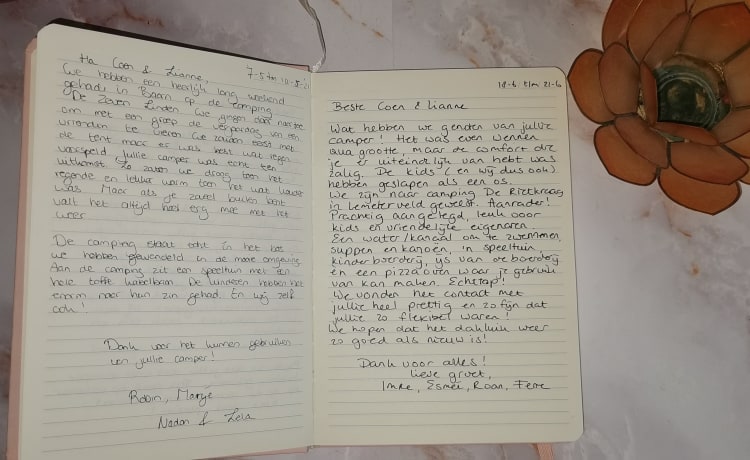 Ha Coen & Lianne,
7-5 t/m 10-5-'21
We hebben een heerlijk long weekend
gehad in Baarn op de camping
De Zeven Linden. We gingen daar naartoe
om met een groep de verjaardag van een
vrienden te vieren. We zouden eerst met
de tent maar er was best wat regen
voorspeld jullie camper was echt een
uitkomst. Zo zaten we droog toen het
regende en lekker warm toen het wat
was. Maar als je zoveel buiten bent
valt het altijd heel erg mee met het
weer.
De camping staat echt in het bos
we hebben gewandeld in de mooie omgeving.
Aan de camping zit een speeltuin met een
hele toffe kabelbaan. De kinderen hebben het
enorm naar hun zin gehad. En wij zelf
ook!
Dank voor het kunnen gebruiken
van jullie camper!
Robin, Marije
& Leia
18-6 t/m 21-6
Beste Coen & Lianne
Wat hebben we genoten van jullie
camper! Het was even wennen
qua grootte, maar de comfort die
je er uiteindelijk van hebt was
zalig. De kids (en wij dus ook)
hebben geslapen als een os.
We zijn naar camping De Rietkraag
in Lemelerveld geweest. Aanrader!
Prachtig aangelegd, leuk voor
kids en vriendelijke eigenaren.
Een water/kanaal om te zwemmen,
suppen en kanoën, 'n speeltuin,
kinderboerderij, ijs van de boerderij
én een pizzaoven waar je gebruik
van kan maken. Echt top!
We vonden het contact met
jullie heel prettig en zo fijn dat
jullie zo flexibel waren!
We hopen dat het dakluik weer
zo goed als nieuw is!
Dank voor alles!
Lieve groet,
Imke, Esmée, Roan, Ferre